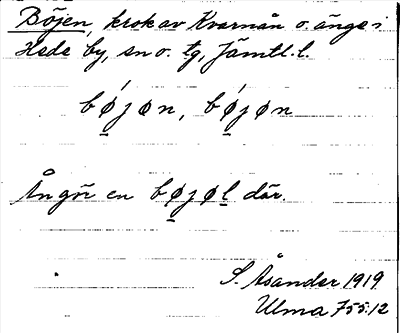 Böjen, krok av Kvarnån o. änge i
Hede by, sn o. tg, Jämtl. l.
bǿjøn, bǿjøn
Ån gör en bøjøl där.
S. Åsander 1919
Ulma 755:12